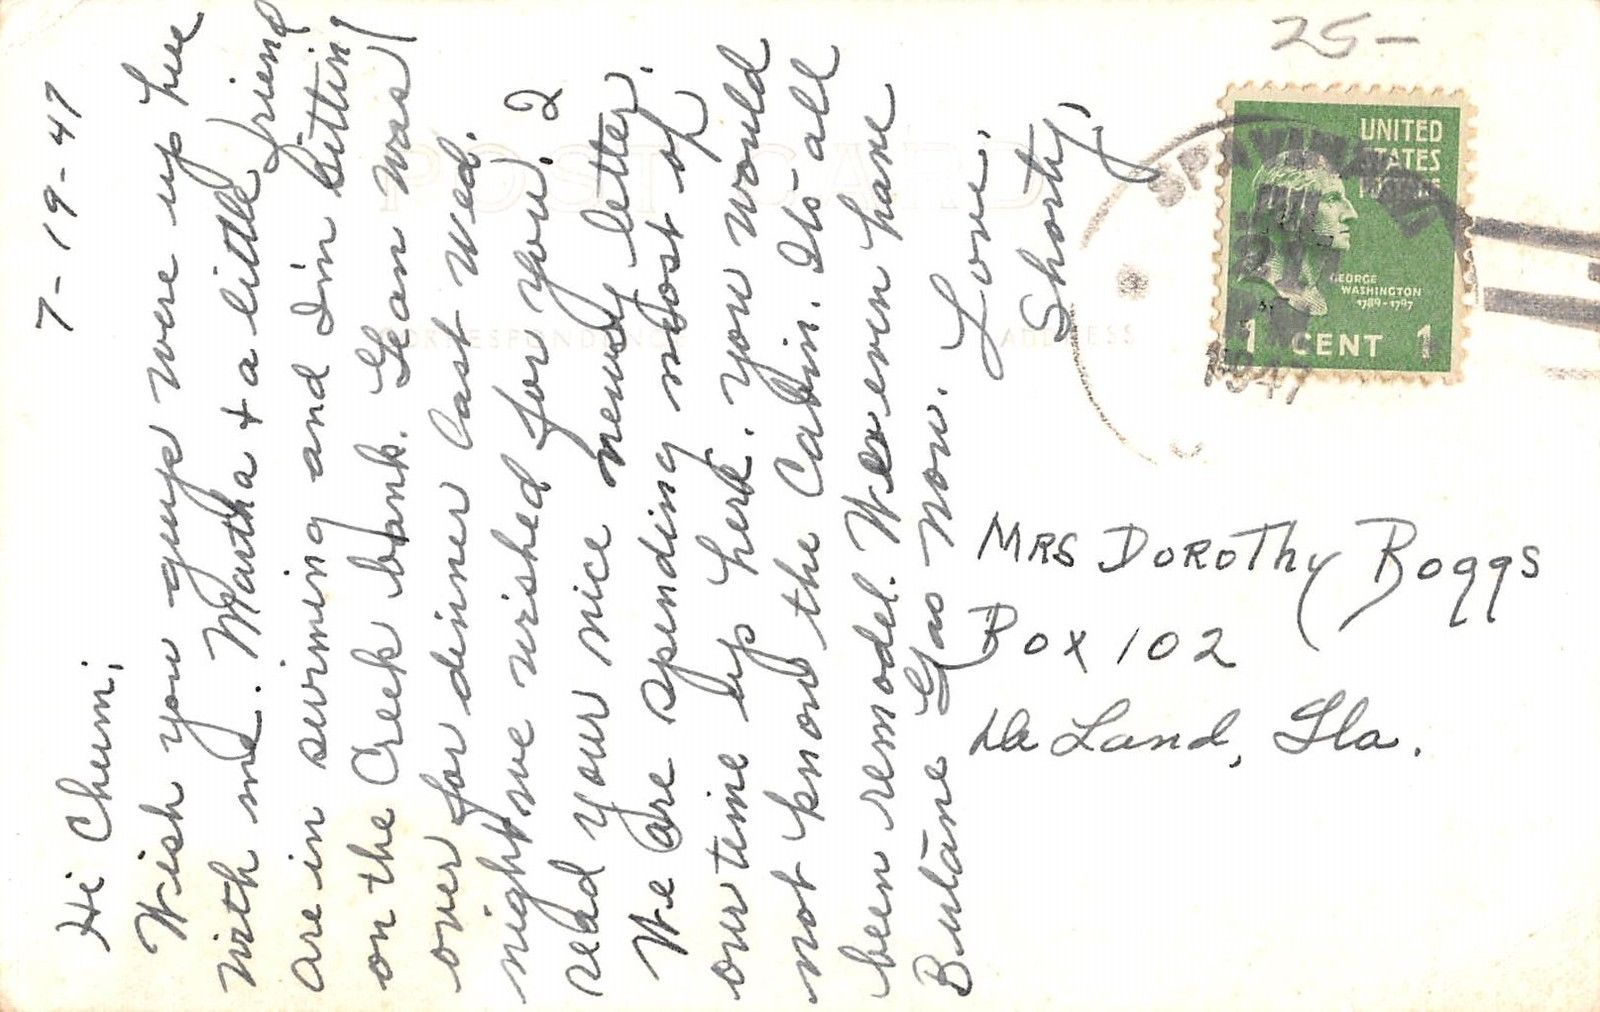 7-19-47
Hi Chum;
Wish you guys were up here
with me. Martha + a little friend
are in swiming and I'm sitting
on the Creek bank. Gean was
over for dinner last Wed.
night we wished for you. I
read your nice newsy letter.
We are spending most of
our time up here. You would
not know the Cabin. Its all
been remodel. We even have
Butane Gas now.
Love,
Shorty,
25-
POST CARD
CORRESPONDENCE
ADDRESS
SPAVINAW
JUL
21
1947
UNITED
STATES
POSTAGE
GEORGE
WASHINGTON
1789-1797
1 CENT 1
MRS DOROTHY Boggs
Box 102
De Land, Fla.